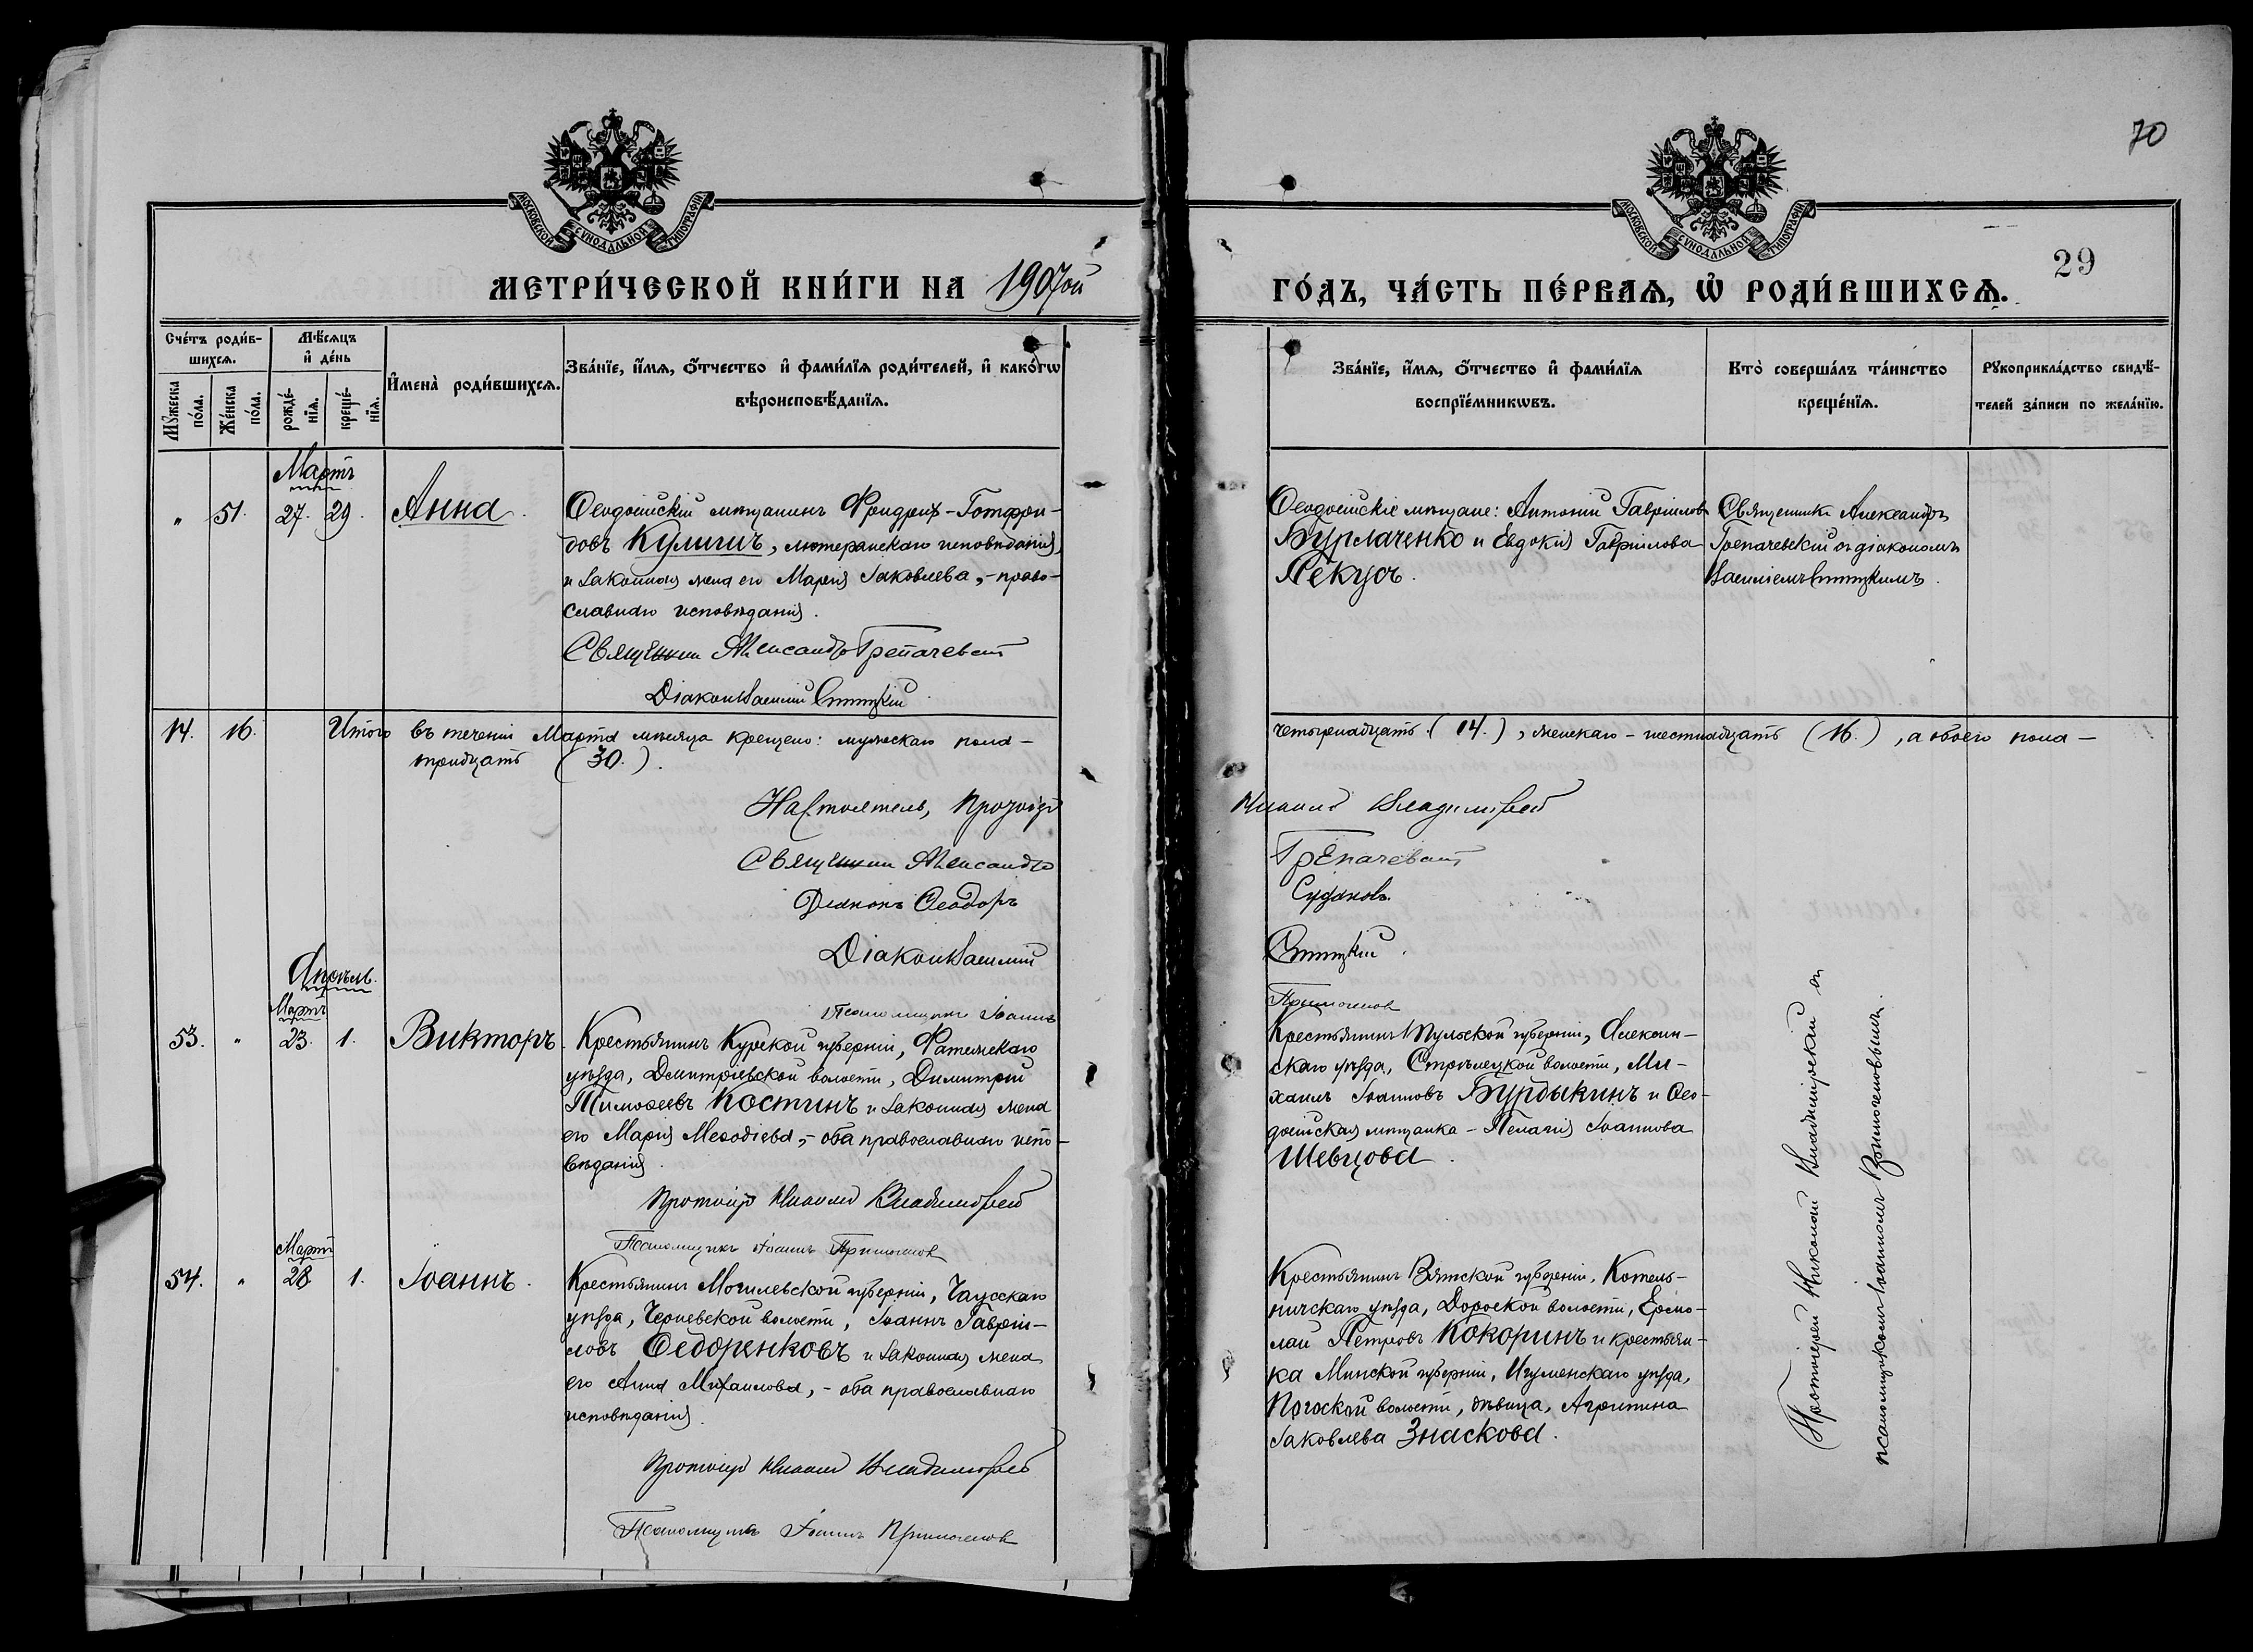 70
МОСКОВСКОЙ СѴНОДАЛЬНОЙ ТИПОГРАФІИ
МОСКОВСКОЙ СѴНОДАЛЬНОЙ ТИПОГРАФІИ
29
МЕТРИ́ЧЕСКОЙ КНИ́ГИ НА 1907ой
ГО́ДЪ, ЧА́СТЬ ПЕ́РВАѦ, Ѡ҆ РОДИ́ВШИХСѦ.
Сче́тъ роди́в-
шихсѧ.
Мꙋ́жеска по́ла.
Же́нска по́ла.
Мѣ́сѧцъ
и҆ де́нь
рожде́-
нїѧ.
креще́-
нїѧ.
И҆мена̀ роди́вшихсѧ.
Зва́нїе, и҆́мѧ, ѻ҆́тчество и҆ фами́лїѧ роди́телей, и҆ како́гѡ
вѣроисповѣ́данїѧ.
Зва́нїе, и҆́мѧ, ѻ҆́тчество и҆ фами́лїѧ
воспрїе́мникѡвъ.
Кто̀ соверша́лъ та́инство
креще́нїѧ.
Рꙋкоприкла́дство свидѣ́-
телей за́писи по жела́нїю.
Мартъ
" 51. 27. 29. Анна.
Ѳеодосійскій мѣщанинъ Фридрих-Готфри-
довъ Кулишъ, лютеранскаго исповѣданія,
и законная жена его Марія Іаковлева,-право-
славнаго исповѣданія.
Священникъ Александръ Трепачевскій
Діаконъ Василій
Ѳеодосійскіе мѣщане: Антоній Гавріиловъ
Бурлаченко и Евдокія Гавріилова
Рекусъ.
Священникъ Александръ
Трепачевскій съ діакономъ
Василіемъ
14. 16. Итого въ теченіи Марта мѣсяца крещено: мужскаго пола-
четырнадцать (14.), женскаго-шестнадцать (16.), а обоего пола-
тридцать (30.).
Настоятель, Протоіер
Николай Владимірскій
Священникъ Александръ
Трепачевскій
Діаконъ Ѳеодоръ
Судаковъ.
Діаконъ Василій
Псаломщикъ Іоаннъ
Примогеновъ
Апрѣль.
Мартъ
53. " 23. 1. Викторъ.
Крестьянинъ Курской губерніи, Фатежскаго
уѣзда, Дмитріевской волости, Димитрій
Тимоѳеевъ Костинъ и законная жена
его Марія Меѳодіева,-оба православнаго испо-
вѣданія.
Протоіер Николай Владимірскій
Псаломщикъ Іоаннъ Примогеновъ
Крестьянинъ Тульской губерніи, Алексин-
скаго уѣзда, Стрѣлецкой волости, Ми-
хаилъ Іоанновъ Бурдыкинъ и Ѳео-
досійская мѣщанка-Пелагія Іоаннова
Шевцова.
Мартъ
54. " 28 1. Іоаннъ.
Крестьянинъ Могилевской губерніи, Чаусскаго
уѣзда, Черневской волости, Іоаннъ Гавріи-
ловъ Ѳедоренковъ и законная жена
его Анна Михаилова,-оба православнаго
исповѣданія.
Протоіер Николай Владимірскій
Псаломщикъ Іоаннъ Примогеновъ
Крестьянинъ Вятской губерніи, Котель-
ничскаго уѣзда, Дорской волости, Ермо-
лай Петровъ Кокоринъ и крестьян-
ка Минской губерніи, Игуменскаго уѣзда,
Погоской волости, дѣвица, Агрипина
Іаковлева Знаскова.
Протоіерей Николай Владимірскій съ
псаломщикомъ Іоанномъ Примогеновымъ.